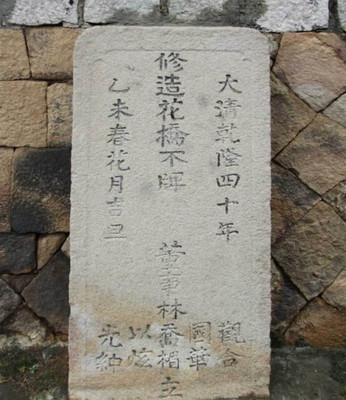 大清乾隆四十年
觀合
國華
修造花橋
董事林喬楣立
以炫
乙未春花月吉旦
光紳